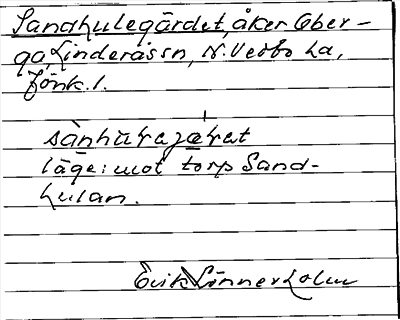 Sandkulegärdet, åker Ober-
ga, Linderås sn, N. Vedbo hd,
Jönk. l.
läge: mot torp Sand-
kulan.
Erik Linnerholm